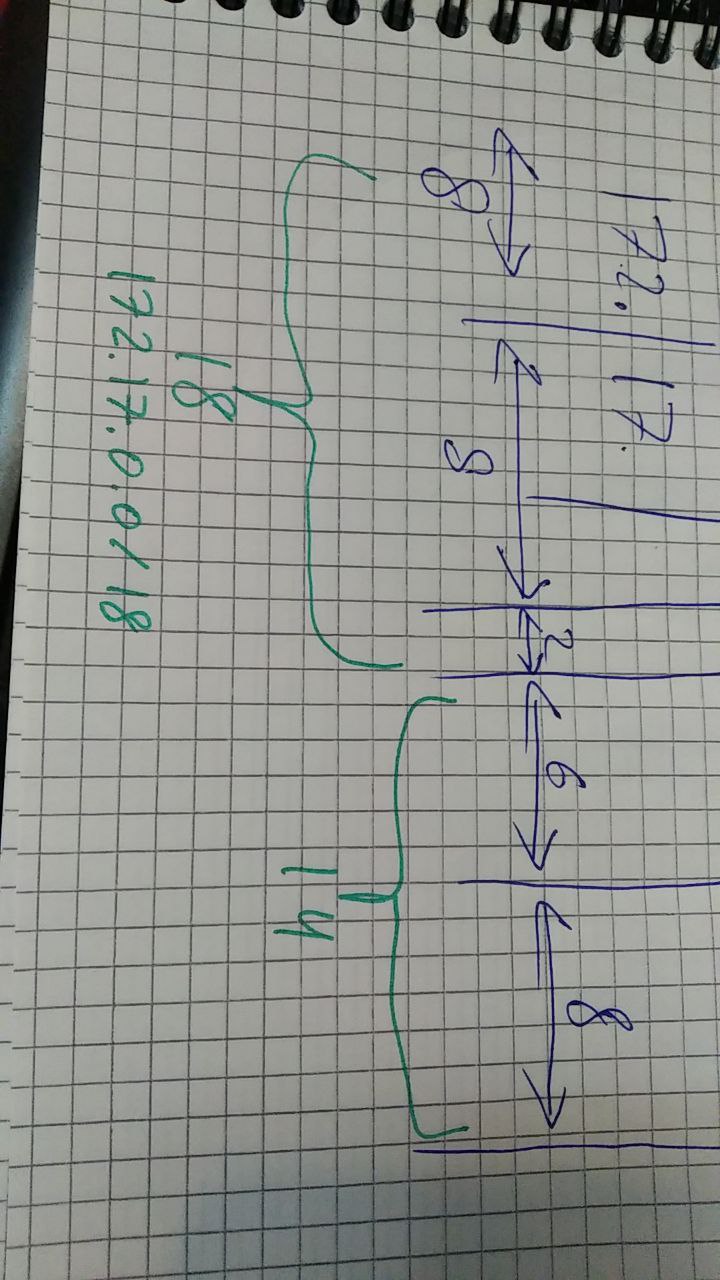 172. 17.
8 8 2 6 8
18 14
172.17.0.0/18